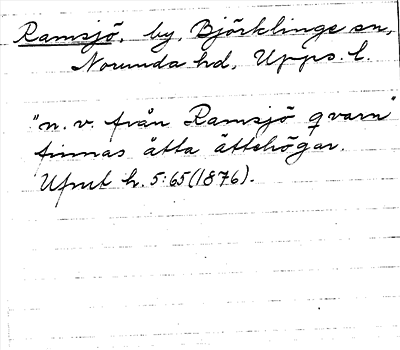 Ramsjö, by, Björklinge sn,
Norunda hd, Upps. l.
"n. v. från Ramsjö qvarn"
finnas åtta ättehögar.
Ufmt h. 5:65 (1876).